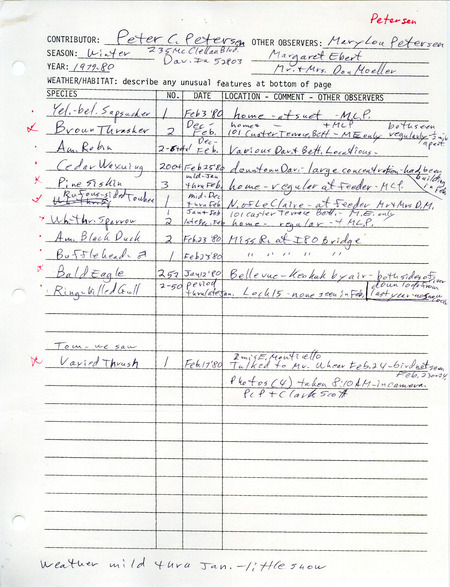 Petersen
CONTRIBUTOR: Peter C. Petersen OTHER OBSERVERS: Mary Lou Petersen
SEASON: Winter 235 McClellan Blvd. Margaret Ebert
YEAR: 1979-80 Dav. Ia 52803 Mr. + Mrs. Don Moeller
WEATHER/HABITAT: describe any unusual features at bottom of page
SPECIES NO. DATE LOCATION - COMMENT - OTHER OBSERVERS
Yel.-bel. Sapsucker 1 Feb 3 '80 home - at suet - MLP.
Brown Thrasher 2 Dec-Feb. home + MLP both seen
101 Custer Terrace, Bett. - ME only regularly
apart
Am. Robin Dec-Feb. Various Dav + Bett. Locations -
Cedar Waxwing 200+ Feb 25 80 downtown Dav. - large concentration - had been building in Feb
Pine Siskin 3 mid-Jan thru Feb. home - regular at feeder - MLP
Rufous-sided Towhee 1 mid-Dec thru Feb N. of LeClaire - at feeder Mr + Mrs D.M.
1 Jan + Feb 101 Custer Terrace Bett. - M.E. only
Wh-thr. Sparrow 2 home - regular - + MLP.
Am. Black Duck 2 Feb 23 '80 Miss R. at I80 bridge
Bufflehead ♂ 1 Feb 23 '80 " " " " "
Bald Eagle 252 Jan 12 '80 Bellevue - Keokuk by air - both sides of river
Ring-billed Gull 2-50 period thru late Jan. Lock 15 - none seen in Feb. down lots from
last year - no snow
Tom - we saw
Varied Thrush 1 Feb 17 '80 2 mi E. Monticello
Talked to Mr. Feb. 24 - bird not seen
Feb. 23 or 24
Photos (4) taken 8:10 AM - in camera.
PCP + Clark Scott
Weather mild thru Jan. - little snow